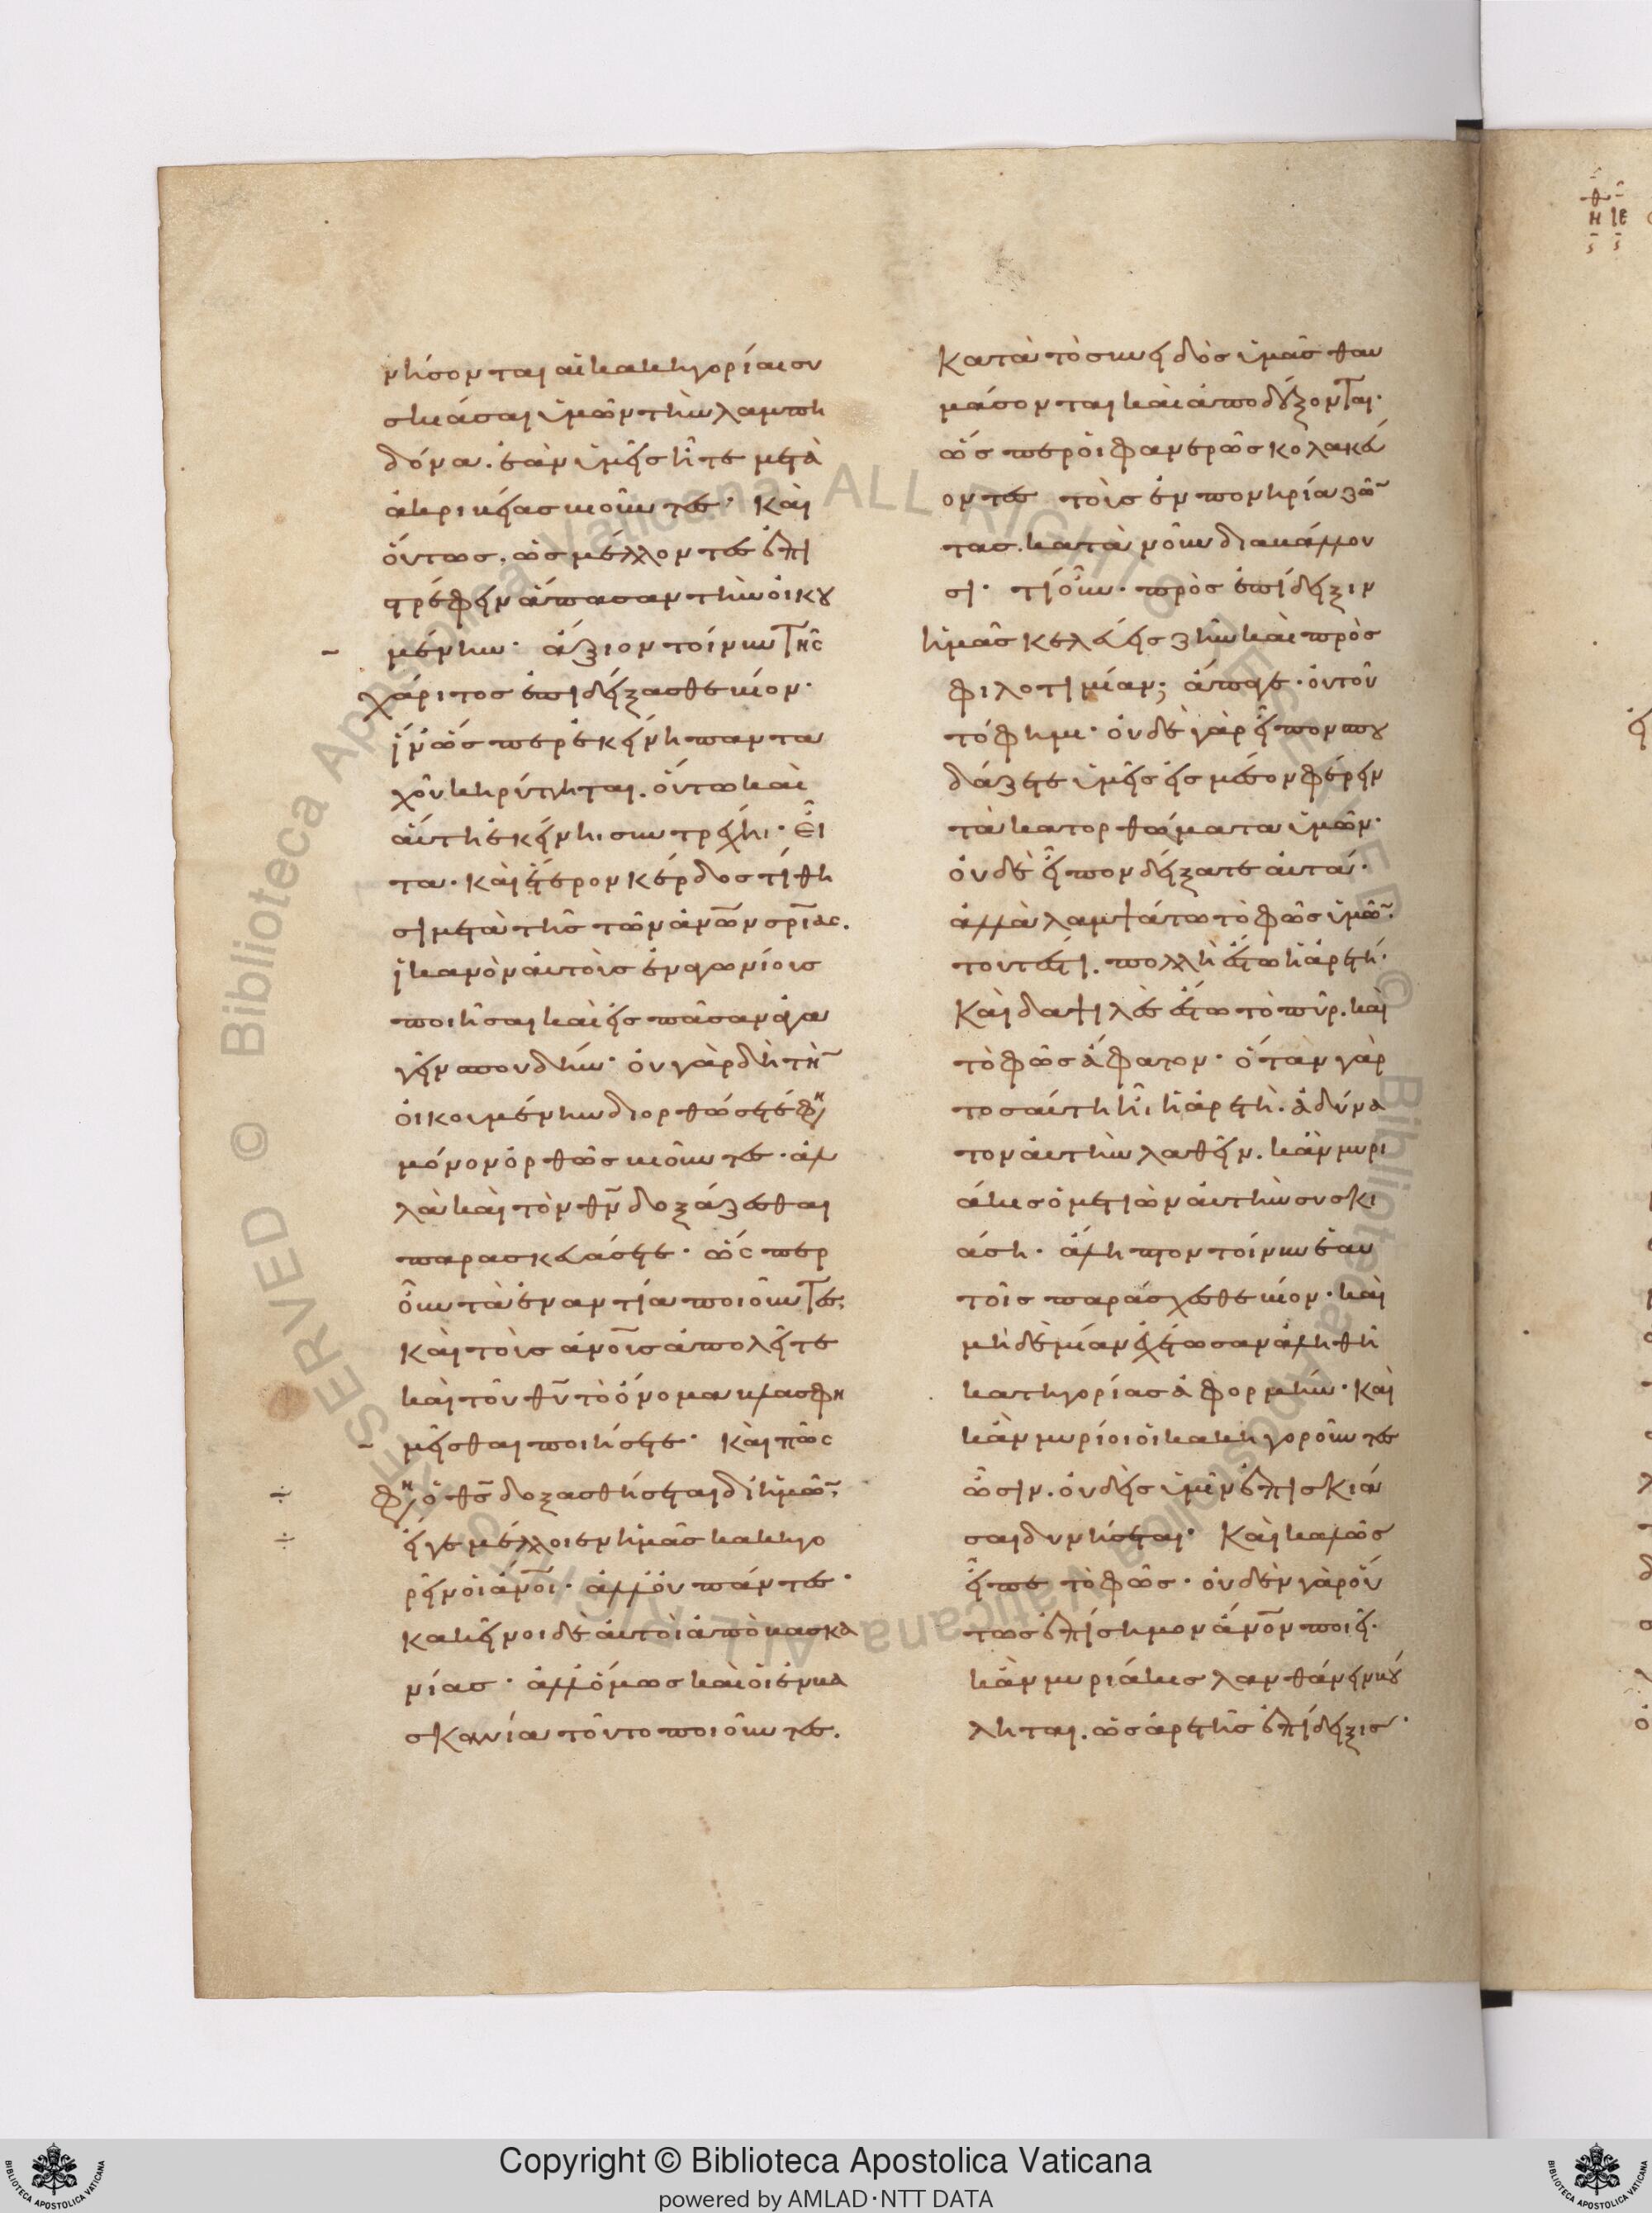 νήσονται αἱ κακηγορίαι συ
σκιάσαι ὑμῶν τὴν λαμπη
δόνα. ἐὰν ὑμεῖς ἦτε μετὰ
ἀκριβείας βιοῦντες· Καὶ
οὕτως. ὡς μέλλοντες ἐπι
στρέφειν ἅπασαν τὴν οἰκου
μένην· ἄξιον τοίνυν τῆς
χάριτος ἐπιδείξασθε βίον·
ἵν' ὥσπερ ἐκείνη πανταχοῦ
χοῦ κηρύττηται. οὕτω καὶ
αὕτη ἐκείνηι συντρέχηι· Εἶ
τα· καὶ ἕτερον κέρδος τίθη
σι μετὰ τῆς τῶν ἀνῶν σρίας.
ἱκανὸν αὐτοὺς ἐναγωνίους
ποιῆσαι καὶ εἰς πᾶσαν ἀγα
γεῖν σπουδήν· οὐ γὰρ δὴ τὴν
οἰκουμένην διορθώσετέ φη
μόνον ὀρθῶς βιοῦντες· ἀλ
λὰ καὶ τὸν θν δοξάζεσθαι
παρασκευάσετε· ὥσπερ
οὖν τὰ ἐναντία ποιοῦντες,
Καὶ τοὺς ἀνους ἀπολεῖτε
καὶ τοῦ θυ τὸ ὄνομα βλασφη
μεῖσθαι ποιήσετε· Καὶ πῶς
φη ὁ θς δοξασθήσεται δι' ἡμῶν,
εἴγε μέλλοιεν ἡμᾶς κακηγο
ρεῖν οἱ ἄνοι· ἀλλ' οὐ πάντες·
κἀκεῖνοι δὲ αὐτοὶ ἀπὸ βασκα
νίας· ἀλλ' ὅμως καὶ οἱ ἐν βα
σκανία τοῦτο ποιοῦντες.
Κατὰ τὸ συνειδὸς ὑμᾶς θαυ
μάσονται καὶ ἀποδέξονται·
ὥσπερ οἱ φανερῶς κολακεύ
οντες τοὺς ἐν πονηρία ζῶν
τας. κατὰ νοῦν διαβάλλου
σι· τί οὖν· πρὸς ἐπίδειξιν
ἡμᾶς κελεύεις ζῆν καὶ πρὸς
φιλοτιμίαν; ἄπαγε· οὐ τοῦ
τό φημι· οὐδὲ γὰρ εἶπον σπου
δάζετε ὑμεῖς εἰς μέσον φέρειν
τὰ κατορθώματα ὑμῶν·
οὐδὲ εἶπον δείξατε αὐτά·
ἀλλὰ λαμψάτω τὸ φῶς ὑμῶν·
τουτέστι. πολλὴ ἔστω ἡ ἀρετή·
Καὶ δαψιλὲς ἔστω τὸ πῦρ. καὶ
τὸ φῶς ἄφατον· ὅταν γὰρ
τοσαύτη ἦι ἡ ἀρετὴ. ἀδύνα
τον αὐτὴν λαθεῖν. κἂν μυρι
άκις ὁ μετιὼν αὐτὴν συσκι
άση· ἄληπτον τοίνυν ἑαυ
τοῖς παράσχεσθε βίον· καὶ
μὴδὲμίαν ἐχέτωσαν ἀληθῆ
κατηγορίας ἀφορμήν· Καὶ
κἂν μυρίοι οἱ κακηγοροῦντες
ὦσιν. οὐδεὶς ὑμῖν ἐπισκιά
σαι δυνήσεται· Καὶ καλῶς
εἶπε τὸ φῶς· οὐδὲν γὰρ οὕ
τως ἐπίσημον ἄνον ποιεῖ·
κἂν μυριάκις λανθάνειν βού
ληται. ὡς ἀρετῆς ἐπίδειξις·